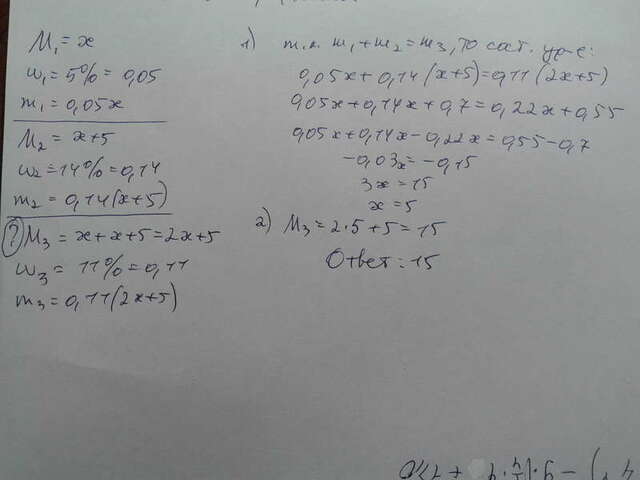 M₁ = x
w₁ = 5% = 0,05
m₁ = 0,05x
M₂ = x+5
w₂ = 14% = 0,14
m₂ = 0,14(x+5)
? M₃ = x+x+5 = 2x+5
w₃ = 11% = 0,11
m₃ = 0,11(2x+5)
1) т.к. m₁+m₂ = m₃, то сост. ур-е:
0,05x + 0,14(x+5) = 0,11(2x+5)
0,05x + 0,14x + 0,7 = 0,22x + 0,55
0,05x + 0,14x - 0,22x = 0,55 - 0,7
-0,03x = -0,15
3x = 15
x = 5
2) M₃ = 2·5+5 = 15
Ответ: 15